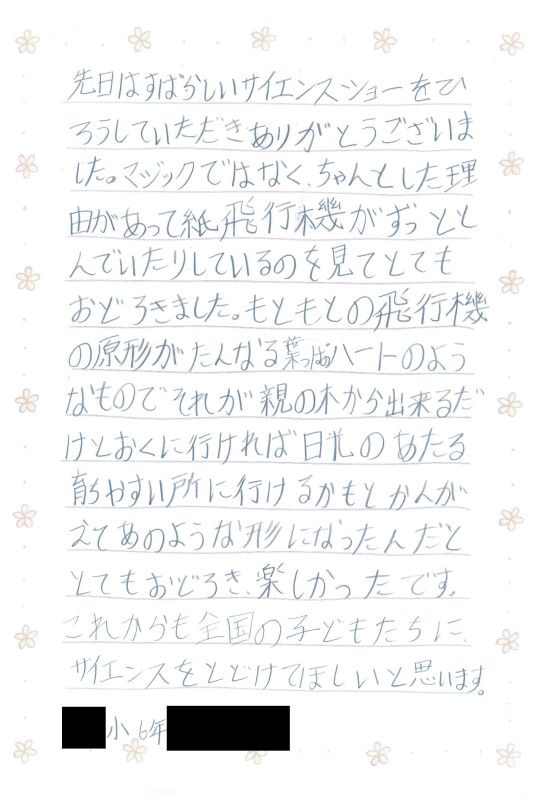 先日はすばらしいサイエンスショーをひ
ろうしていただきありがとうございま
した。マジックではなく、ちゃんとした理
由があって紙飛行機がずっとと
んでいたりしているのを見てとても
おどろきました。もともとの飛行機
の原形がたんなる葉っぱハートのよう
なものでそれが親の木から出来るだ
けとおくに行ければ日光のあたる
育ちやすい所に行けるかもとかんが
えてあのような形になったんだと
とてもおどろき、楽しかったです。
これからも全国の子どもたちに、
サイエンスをとどけてほしいと思います。
小6年